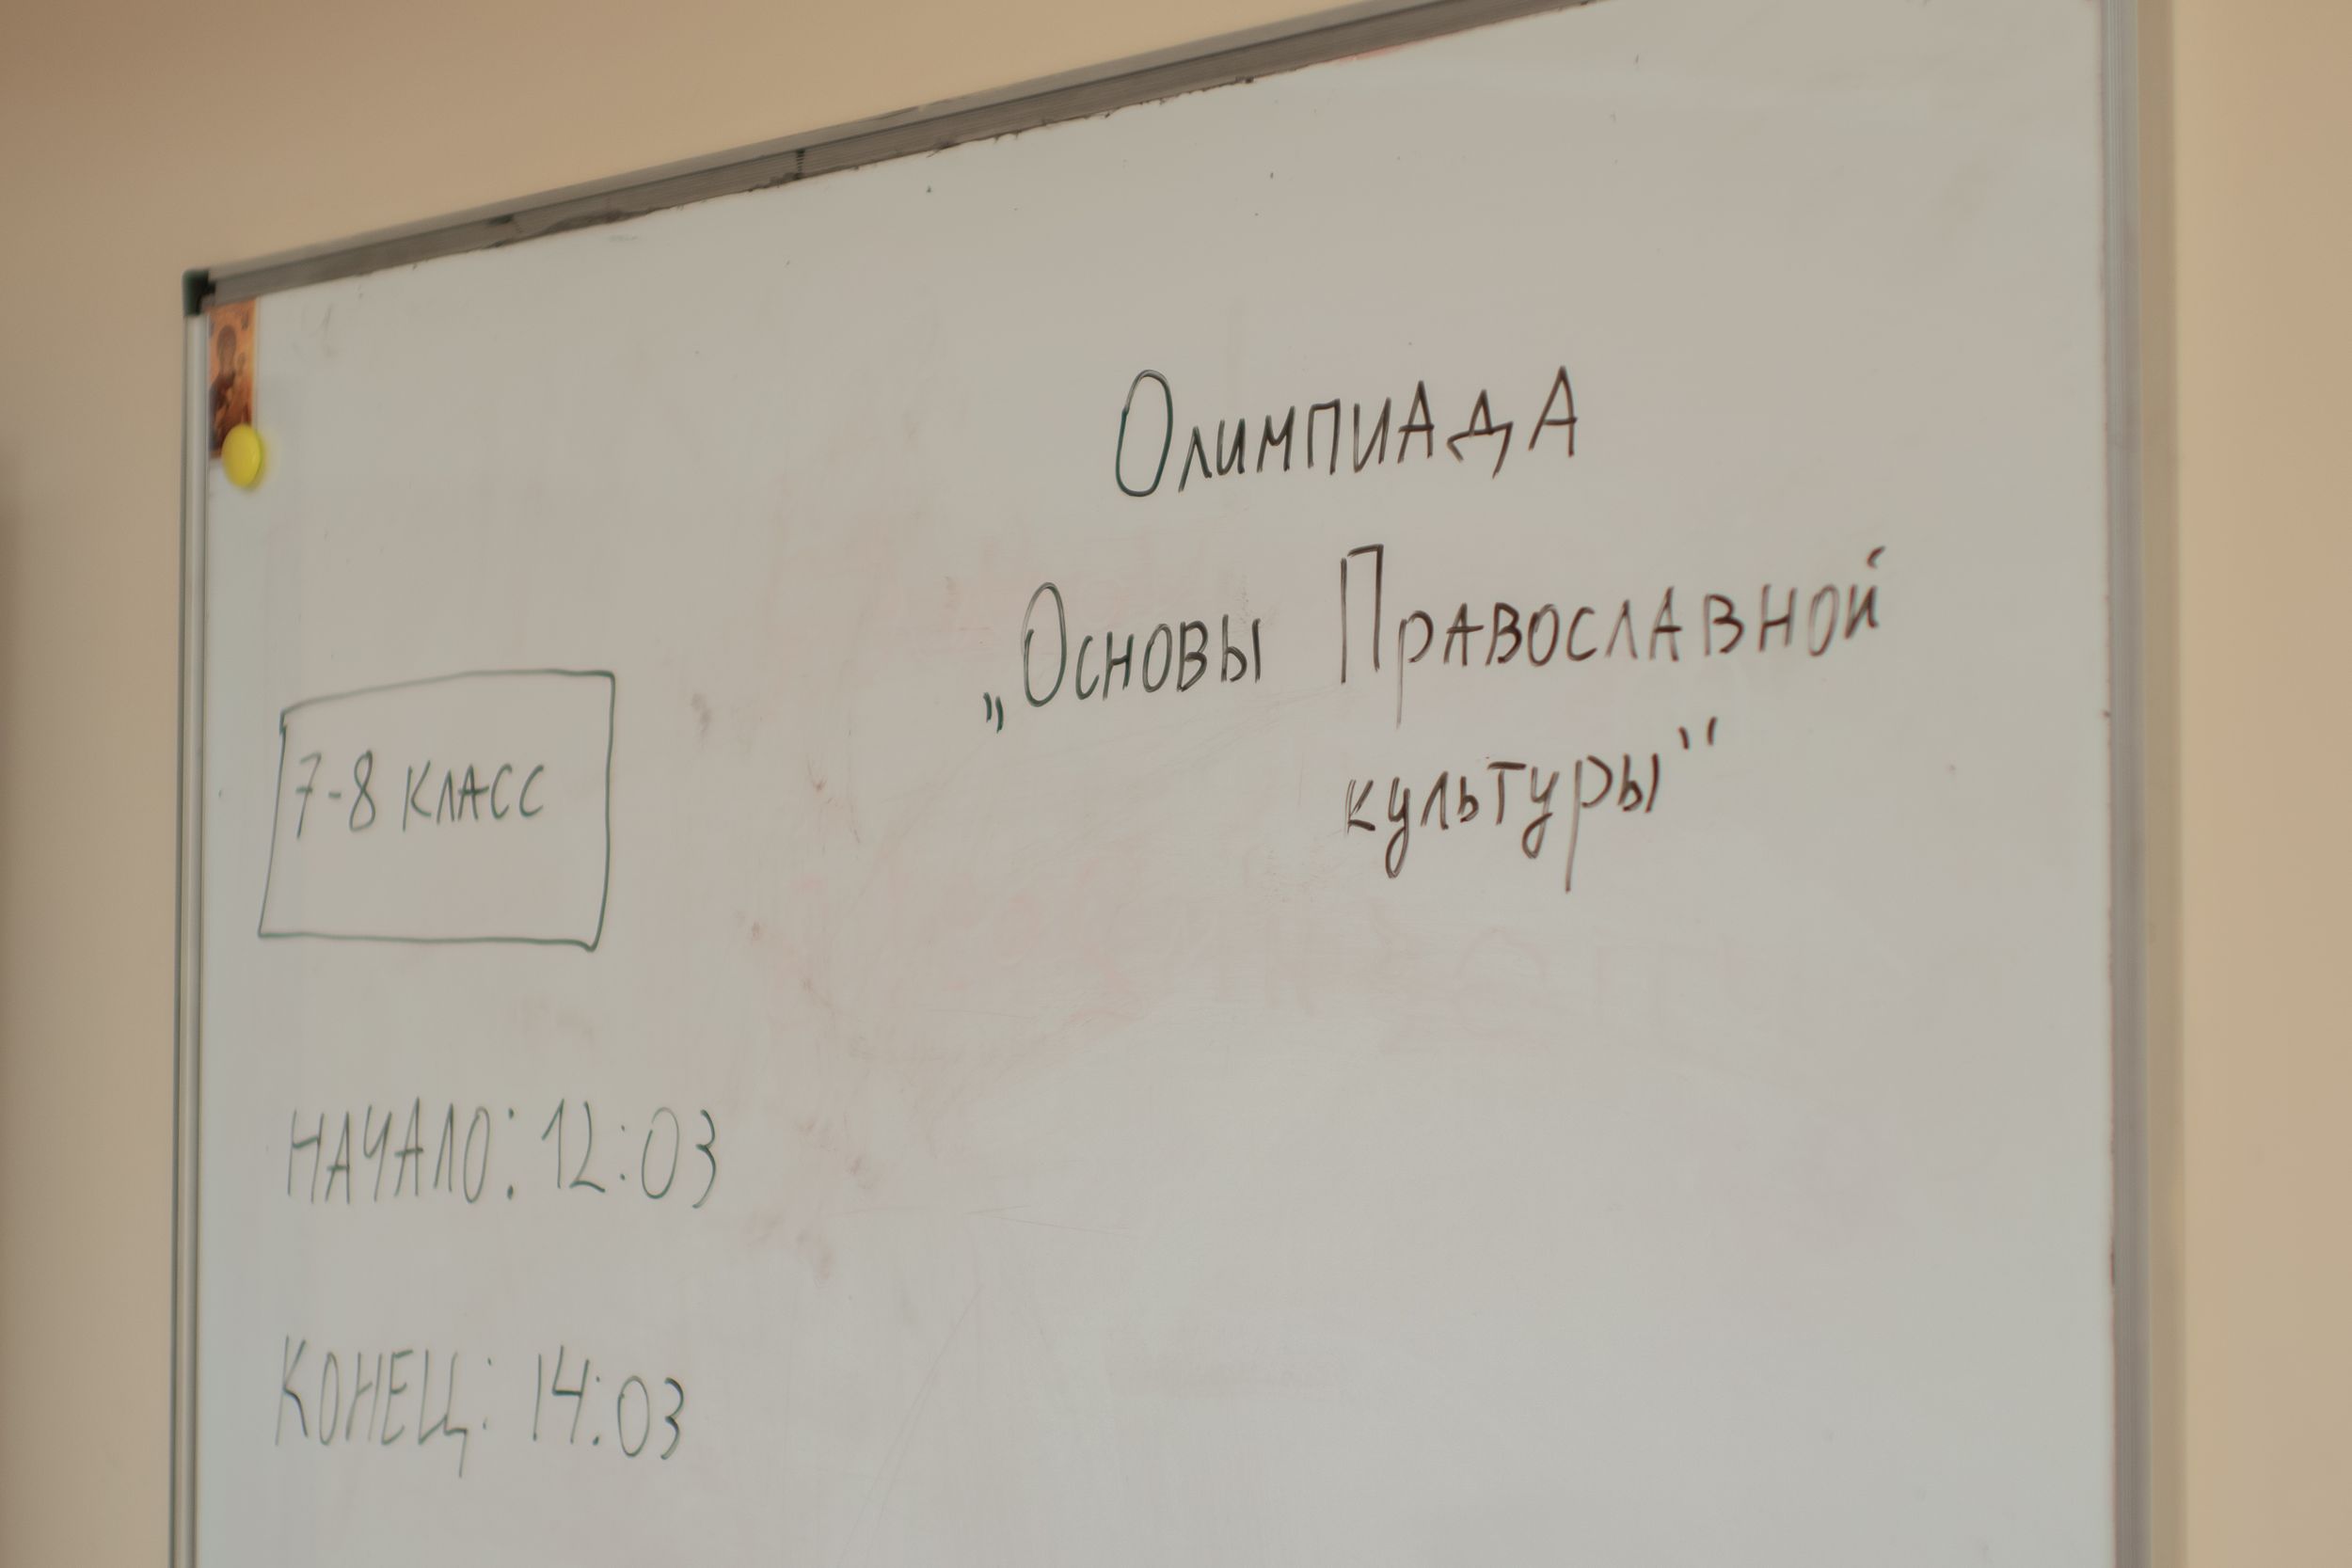 Олимпиада
„Основы Православной
культуры"
7-8 класс
Начало: 12:03
Конец: 14:03